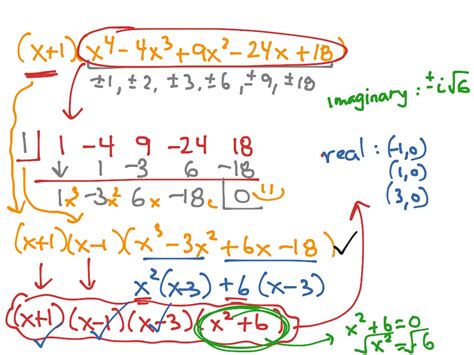 (x+1)(x⁴-4x³+9x²-24x+18)
±1, ±2, ±3, ±6, ±9, ±18
imaginary: ±i√6
1 | 1 -4 9 -24 18
↓ 1 -3 6 -18
1x³ -3x² 6x -18c 0
real: (-1,0)
(1,0)
(3,0)
(x+1)(x-1)(x³-3x²+6x-18)✓
x²(x-3)+6(x-3)
(x+1)(x-1)(x-3)(x²+6)
x²+6=0
√x²=√6